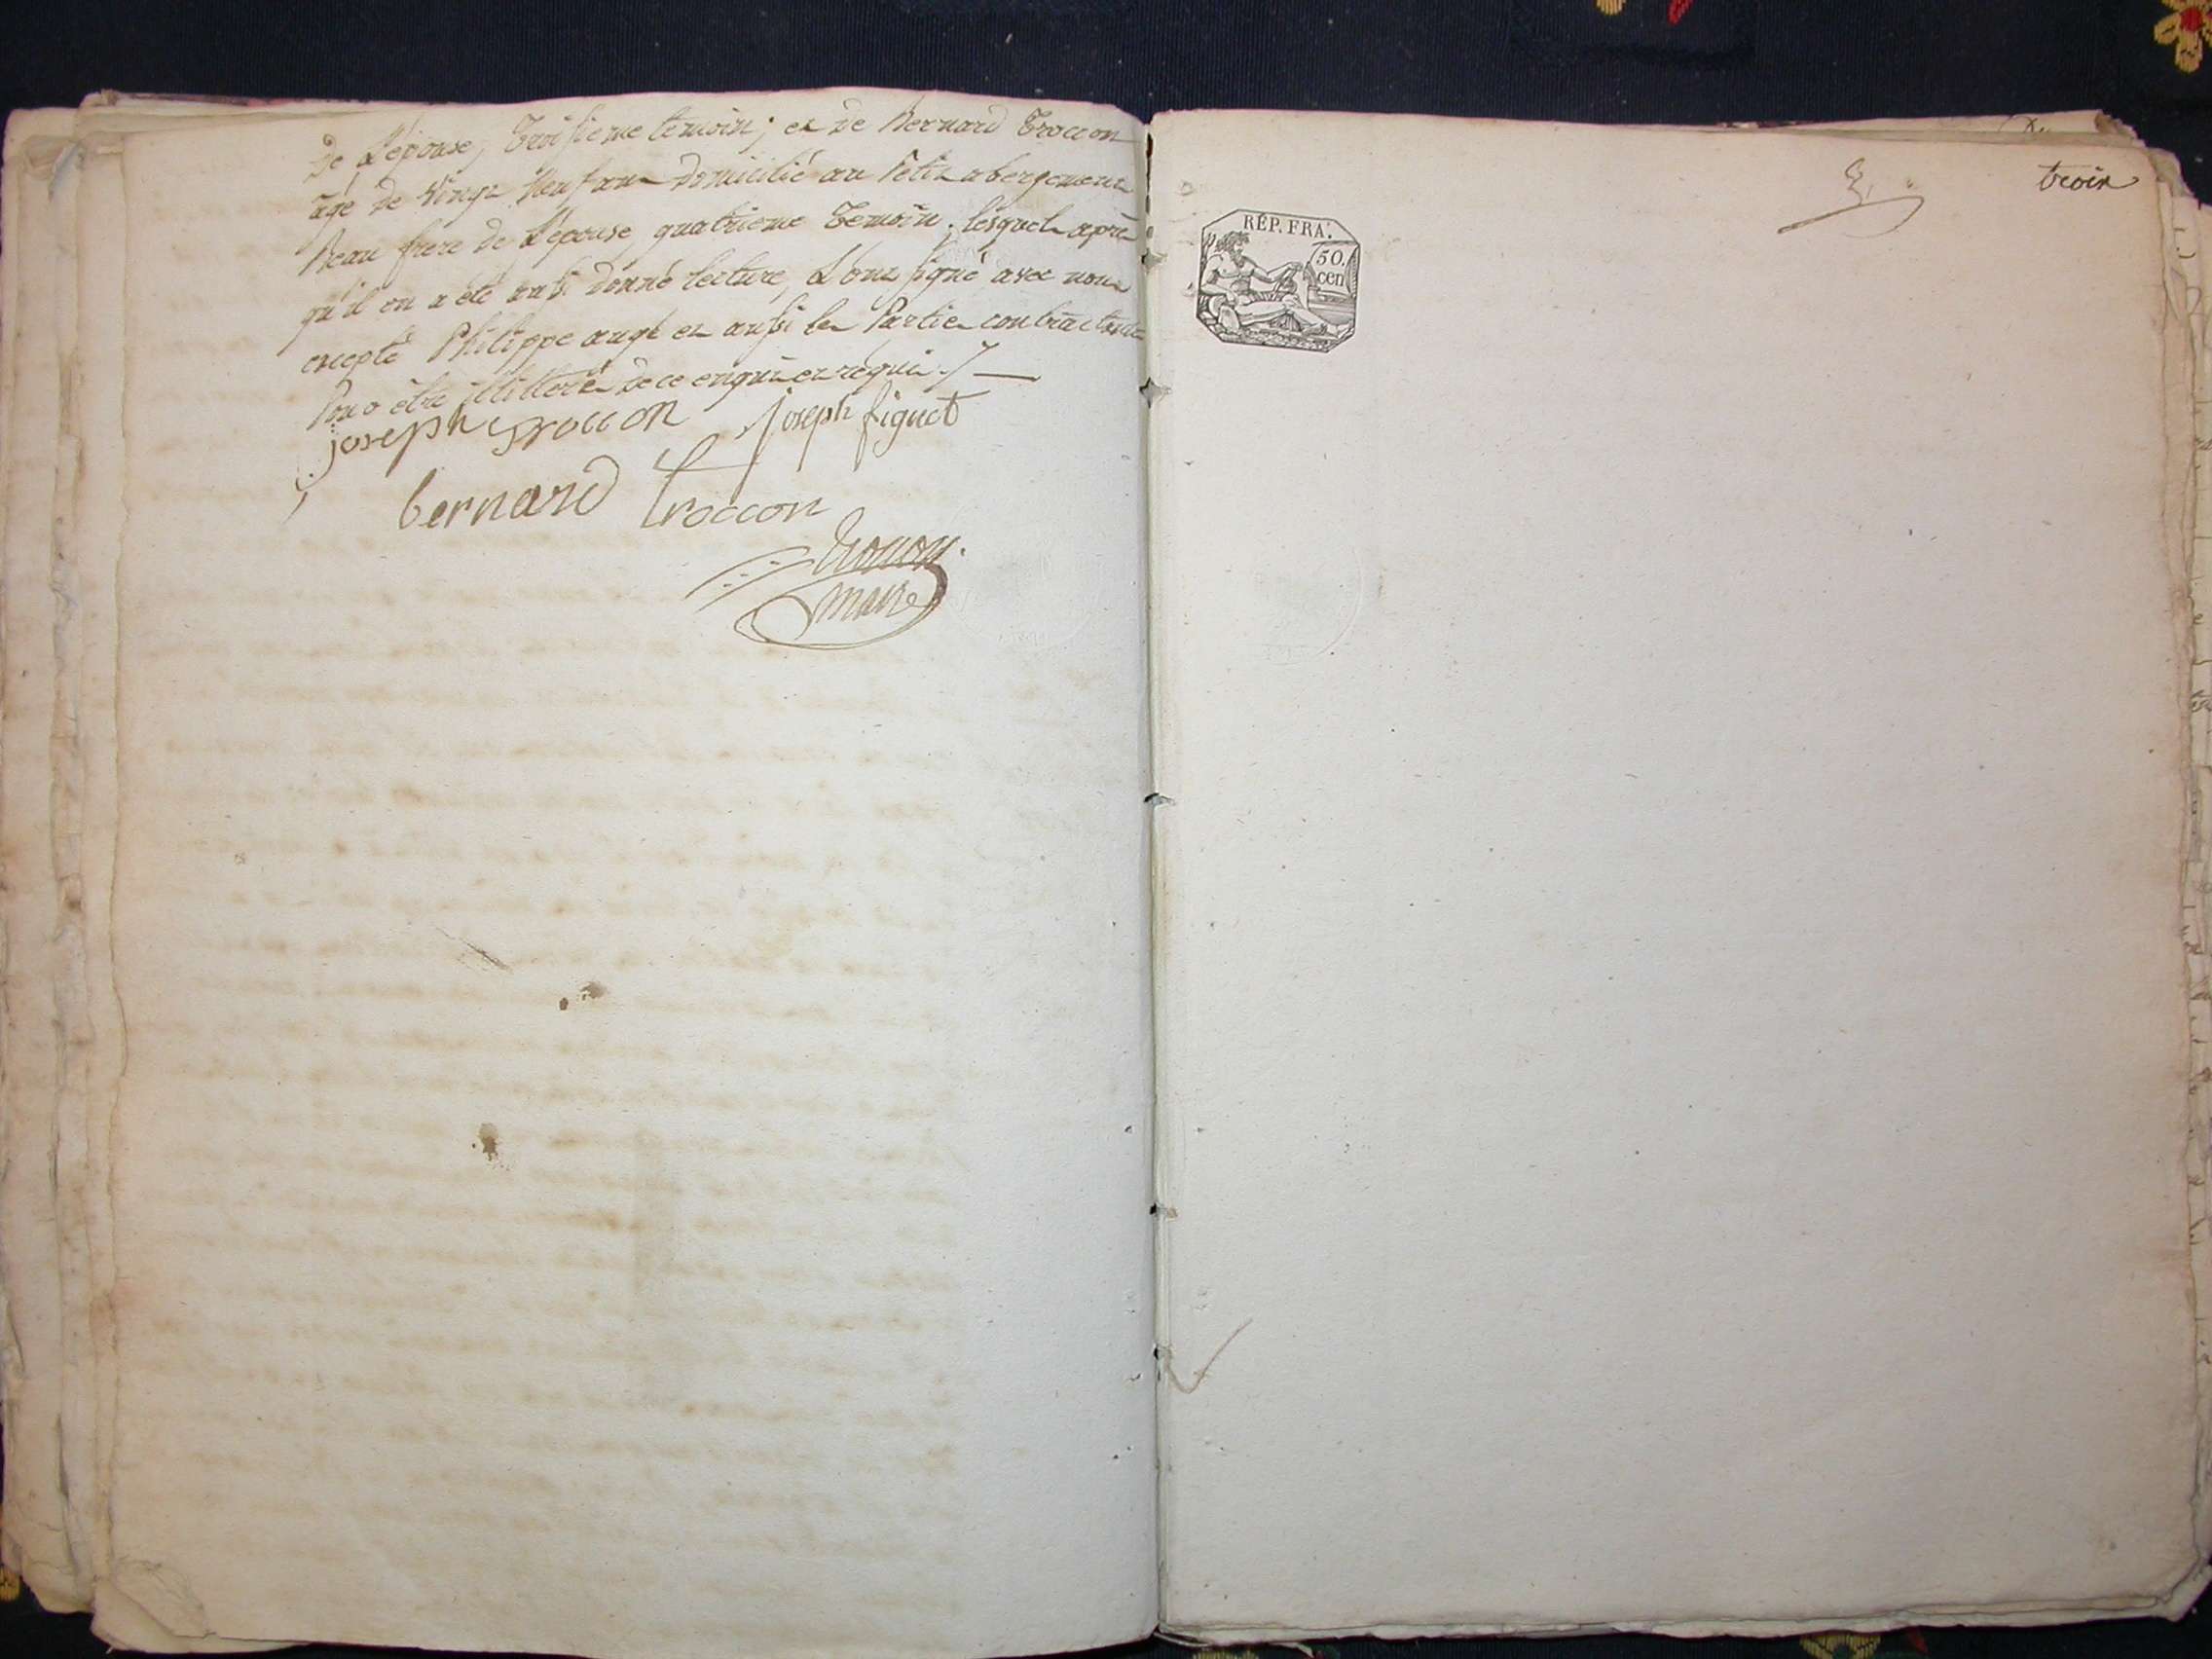 de L'épouse, troisieme temoin; et de Bernard Troccon
âgé de vingt neuf ans domicilié au Petit abergement
Beau frere de L'épouse, quatrieme Temoin; lesquels après
qu'il en a été aussi donné lecture, L'ont signé avec nous
excepté Philippe augé et aussi les Parties contractantes
Pour être illitteré de ce enquis et requis ./.
joseph troccon joseph figuet
bernard troccon
trocon
maire
trois
RÉP. FRA.
50.
cen